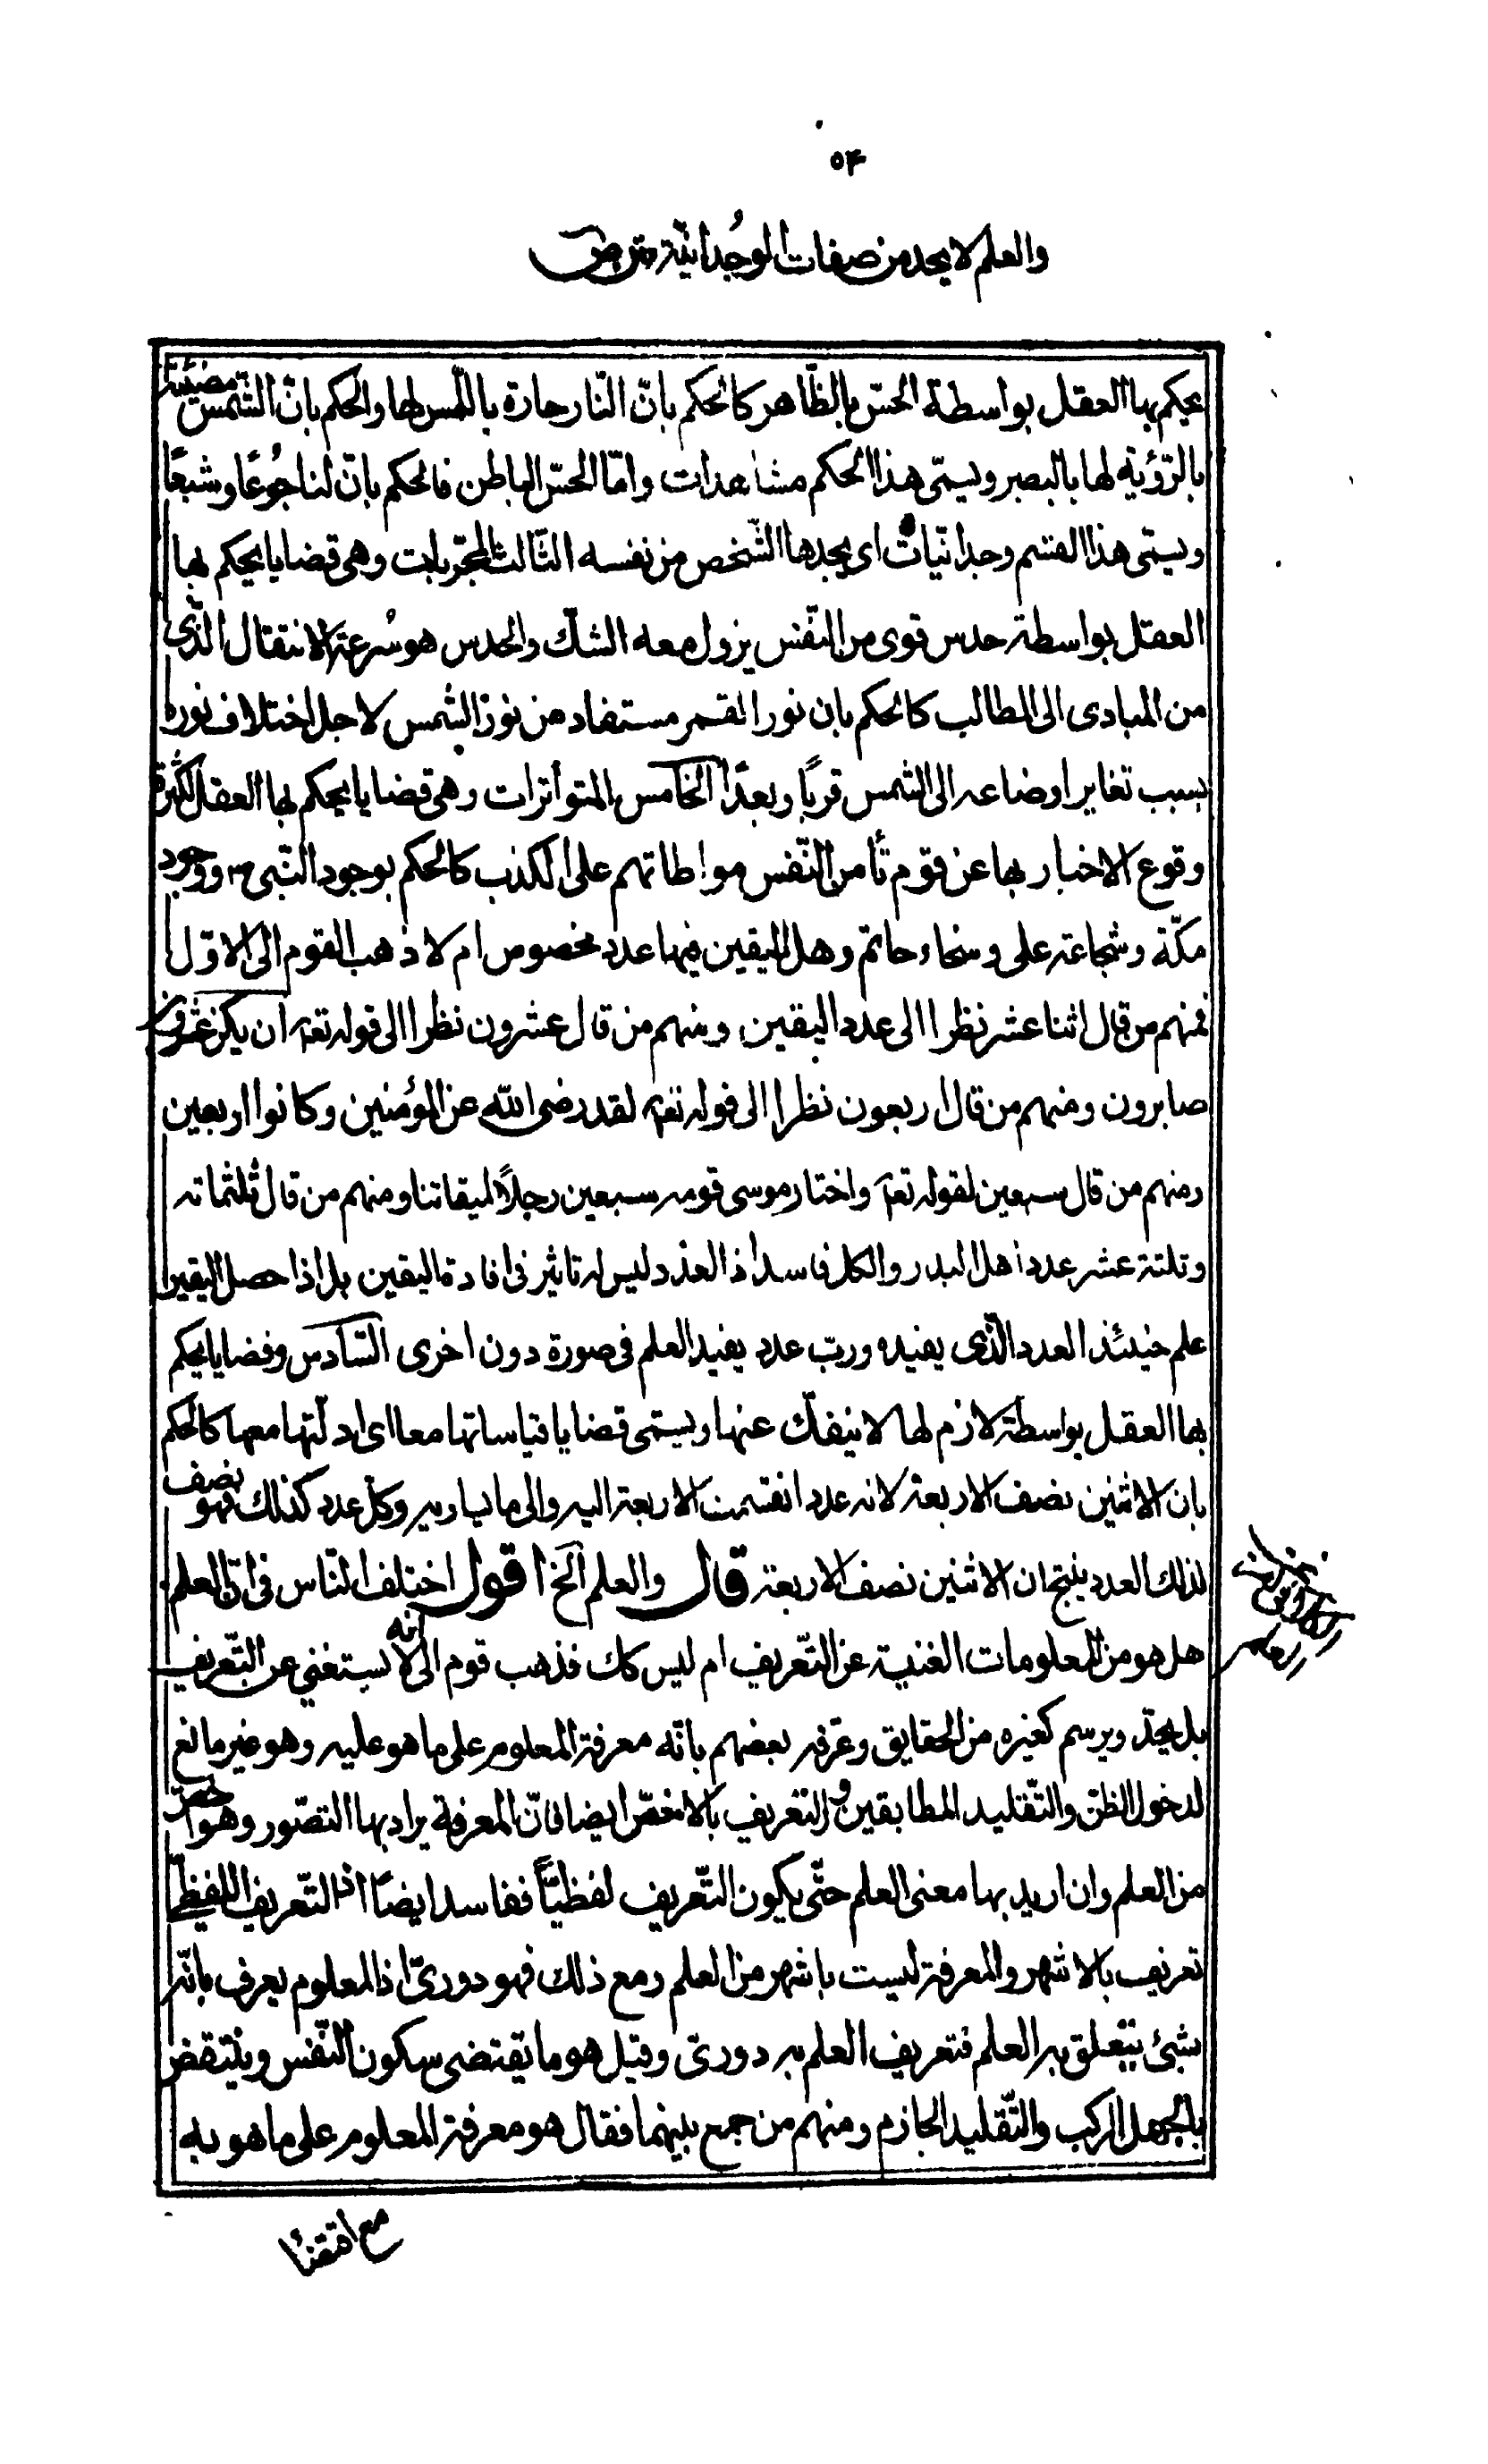 ۵۴
والعلم لا يحد من صفات الوجدانية
يحكم بها العقل بواسطة الحسّ بالظّاهر كالحكم بانّ النّار حارة باللّمس لها والحكم بانّ الشّمس مضيئة
بالرّؤية لها بالبصر ويسمّى هذا الحكم مشاهدات وامّا الحسّ الباطن فالحكم بانّ لنا جُوعًا وشبعًا
ويسمّى هذا القسم وجدانيّات اى يجدها الشّخص من نفسه الثّالث المجرّبات وهى قضايا يحكم بها
العقل بواسطة حدس قوى من النّفس يزول معه الشكّ والحدس هو سُرعة الانتقال الّذى
من المبادى الى المطالب كالحكم بان نور القمر مستفاد من نور الشّمس لاجل اختلاف نوره
بسبب تغاير اوضاعه الى الشّمس قربًا وبعدًا الخامس المتواترات وهى قضايا يحكم بها العقل لكثرة
وقوع الاخبار بها عن قوم تأمن النّفس مواطاتهم على الكذب كالحكم بوجود النّبى ص ووجود
مكّة وشجاعة على وسخاء حاتم وهل لليقين فيها عدد مخصوص ام لا ذهب القوم الى الاوّل
فمنهم من قال اثنا عشر نظرا الى عدد اليقين ومنهم من قال عشرون نظرا الى قوله تعم ان يكن عشرون
صابرون ومنهم من قال اربعون نظرا الى قوله تعم لقد رضى الله عن المؤمنين وكانوا اربعين
ومنهم من قال سبعين لقوله تعم واختار موسى قومه سبعين رجلاً لميقاتنا ومنهم من قال ثلثمائه
وثلثة عشر عدد اهل البدر والكل فاسد اذ العدد ليس له تاثير فى افادة اليقين بل اذا حصل اليقين
علم حينئذ العدد الّذى يفيده وربّ عدد يفيد العلم فى صورة دون اخرى السّادس وقضايا يحكم
بها العقل بواسطة لازم لها لا ينفكّ عنها ويسمّى قضايا قياساتها معها اى ادلّتها معها كالحكم
بان الاثنين نصف الاربعة لانه عدد انقسمت الاربعة اليه والى ما يساويه وكل عدد كذلك فهو نصف
لذلك العدد ينتج ان الاثنين نصف الاربعة قال والعلم الخ اقول اختلف النّاس فى انّ العلم
هل هو من المعلومات الغنية عن التّعريف ام ليس كك فذهب قوم الى انه لا يستغنى عن التّعريف
بل يحدّ ويرسم كغيره من الحقايق وعرّفه بعضهم بانّه معرفة المعلوم على ما هو عليه وهو غير مانع
لدخول الظن والتّقليد المطابقين و التعريف بالاخصّ ايضا فانّ المعرفة يراد بها التصّور وهو اخصّ
من العلم وان اريد بها معنى العلم حتّى يكون التّعريف لفظيّاً ففاسد ايضًا اذ التّعريف اللّفظىّ
تعريف بالاشهر والمعرفة ليست باشهر من العلم ومع ذلك فهو دورىّ اذ المعلوم يعرف بانّه
شئ يتعلق به العلم فتعريف العلم به دورىّ وقيل هو ما يقتضى سكون النّفس وينتقض
بالجهل المركب والتّقليد الجازم ومنهم من جمع بينهما فقال هو معرفة المعلوم على ما هو به
مع اقتضا